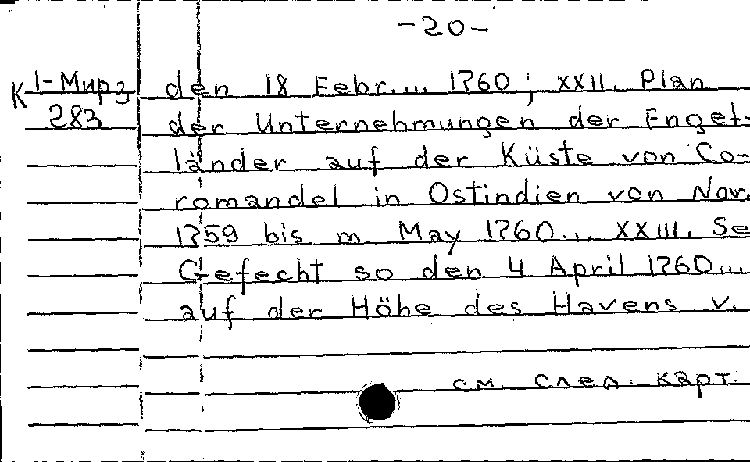 -20-
К 1-Мирз
283
den 18 Febr.... 1760; XXII. Plan
der Unternehmungen der Engel-
länder auf der Küste von Co-
romandel in Ostindien von Nov.
1759 bis m. May 1760... XXIII. Se
Gefecht so den 4 April 1760...
auf der Höhe des Havens v.
см. след. карт.